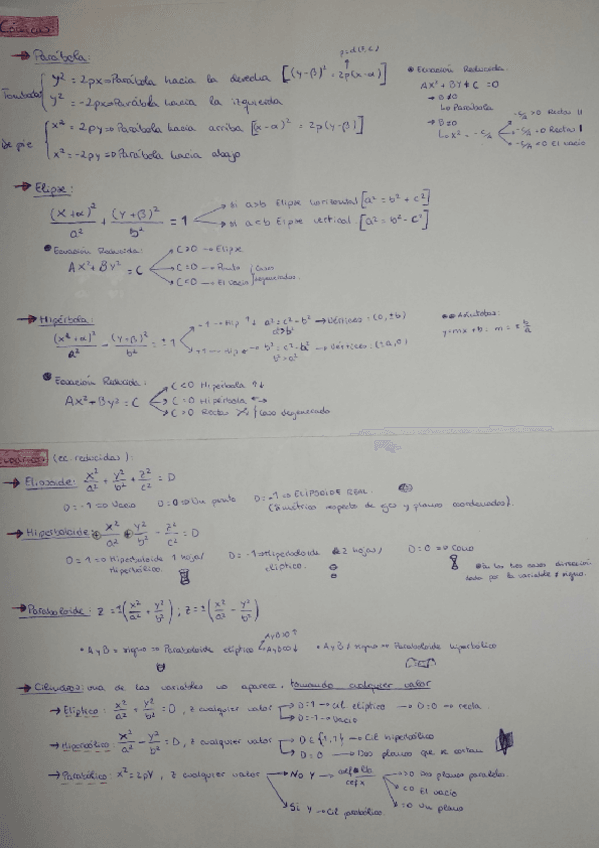 Cónicas:
→ Parábola:
Tumbada { y² = 2px ⇒ Parábola hacia la derecha [(y-β)² = 2p(x-α)]
y² = -2px ⇒ Parábola hacia la izquierda
De pie { x² = 2py ⇒ Parábola hacia arriba [(x-α)² = 2p(y-β)]
x² = -2py ⇒ Parábola hacia abajo
Ecuación Reducida:
AX² + BY + C = 0
→ B≠0
↳ Parábola
→ B=0
↳ x² = -C/A → -C/A > 0 Rectas ||
-C/A = 0 Rectas
-C/A < 0 El vacío
→ Elipse:
(X+α)²/a² + (Y+β)²/b² = 1 → si a>b Elipse horizontal [a² = b² + c²]
→ si a<b Elipse vertical
Ecuación Reducida:
AX² + BY² = C → C>0 → Elipse
C=0 → Punto
C<0 → El vacío
Casos degenerados
→ Hipérbola:
a² = c² - b² → Vértices: (0, ±b)
b² = c² - a² → Vértices: (±a, 0)
Asíntotas:
y = mx + b: m = ± b/a
Ecuación Reducida:
AX² + By² = C → C<0 Hipérbola ↑↓
C=0 Hipérbola
C=0 Rectas
Caso degenerado
(ec. reducidas):
→ Elipsoide: x²/a² + y²/b² + z²/c² = D
D = -1 ⇒ Vacío D = 0 ⇒ Un punto D = -1 ⇒ ELIPSOIDE REAL
(Simétrico respecto de ejes y planos coordenados).
→ Hiperboloide:
D = 1 ⇒ Hiperboloide 1 hoja/ D = -1 ⇒ Hiperboloide 2 hojas/ D = 0 ⇒ Cono
Hiperbólico. elíptico
En los tres casos
por la variable signo.
→ Paraboloide: z = ±(x²/a² + y²/b²); z = ±(x²/a² - y²/b²)
• A y B = signo ⇒ Paraboloide elíptico • A y B ≠ signo ⇒ Paraboloide hiperbólico
→ Cilindros: una de las variables no aparece, tomando cualquier valor
→ Elíptico: x²/a² + y²/b² = D, z cualquier valor → D=1 → Cil. elíptico → D=0 → recta.
→ D=-1 → Vacío
→ Hiperbólico: x²/a² - y²/b² = D, z cualquier valor → D∈{1,-1} → Cil hiperbólico
→ D=0 → Dos planos que se cortan
→ Parabólico: x² = 2pY, z cualquier valor → No Y → >0 Dos planos paralelos
<0 El vacío
=0 Un plano
Si Y → Cil parabólico.